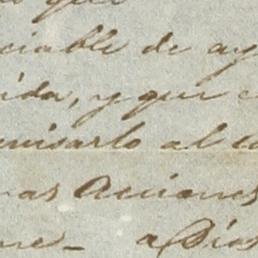 que
ciable de ay
ida, y que e
avisarlo al
as Acciones
nes_ a Dios